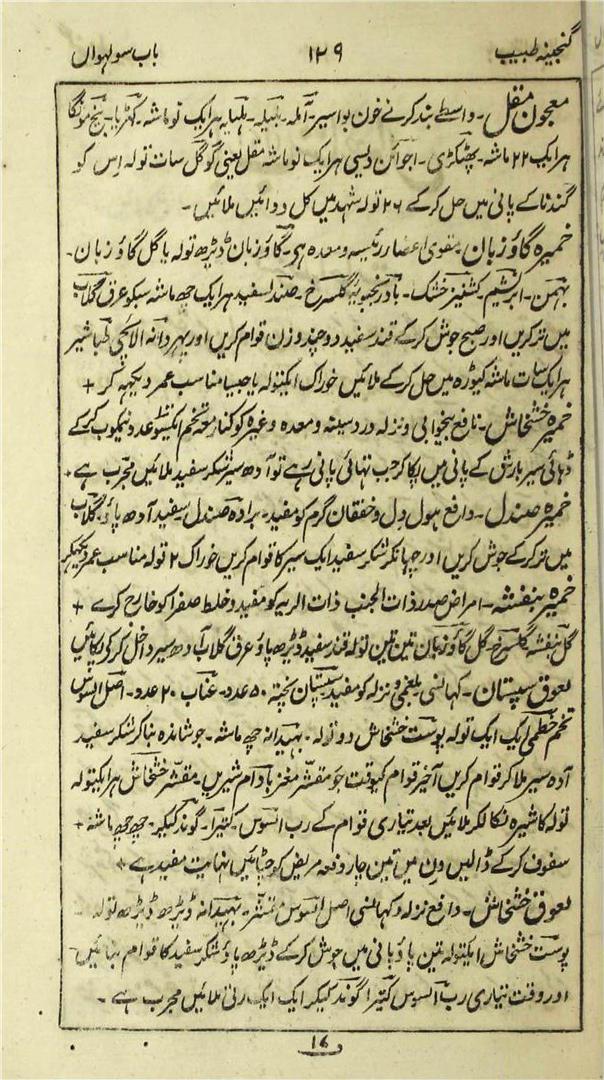 گنجینہ طبیب ۱۲۹ باب سولہواں
معجون مقل۔ واسطے بند کرنے خون بواسیر۔ آملہ۔ بلیلہ۔ ہلیلہ ہر ایک نو ماشہ۔ کہربا۔ بیخ مونگا
ہر ایک ۲۲ ماشہ۔ پھٹکڑی۔ اجوائن دیسی ہر ایک نو ماشہ مقل یعنی گوگل سات تولہ اس کو
گندنا کے پانی میں حل کر کے ۲۶ تولہ شہد میں کل دوائیں ملائیں۔
خمیرہ گاؤزبان۔ مقوی اعضاء رئیسہ و معدہ ہی۔ گاؤزبان ڈیڑھ تولہ یا گل گاؤزبان۔
بہمن۔ ابریشم۔ کشنیز خشک۔ بادرنجبویہ گلسرخ۔ صندل سفید ہر ایک چھ ماشہ سبکو عرق گلاب
میں تر کریں اور صبح جوش کر کے قند سفید دو چند وزن قوام کریں اور بہر دانہ الائچی طباشیر
ہر ایک سات ماشہ کیوڑہ میں حل کر کے ملائیں خوراک ایکتولہ یا جیسا مناسب عمر دیکھہ کر +
خمیرہ خشخاش۔ نافع بیخوابی و نزلہ درد سینہ و معدہ وغیرہ کوکنار معہ تخم عدد نیمکوب کر کے
ڈہائی سیر بارش کے پانی میں پکا کر جب تہائی پانی رہے تو آدھ سیر شکر سفید ملائیں مجرب ہے +
خمیرہ صندل۔ دافع ہول دل و خفقان گرم کو مفید۔ برادہ صندل سفید آدھ پاؤ۔ گلاب
میں تر کر کے جوش کریں اور چہانکر شکر سفید ایک سیر کا قوام کریں خوراک ۲ تولہ مناسب عمر دیکہکر
خمیرہ بنفشہ۔ امراض صدر ذات الجنب ذات الریہ کو مفید و خلط صفرا کو خارج کرے +
گل بنفشہ گلسرخ گل گاؤزبان تین تین تولہ قند سفید ڈیڑھ پاؤ عرق گلاب آدھ سیر داخل کر کی پکائیں
لعوق سپستان۔ کہانسی بلغمی و نزلہ کو مفید سپستان پختہ ۵۰ عدد۔ عناب ۲۰ عدد۔ اصل السوس
تخم خطمی ایک ایک تولہ پوست خشخاش دو تولہ۔ بہیدانہ چھ ماشہ۔ جوشاندہ بنا کر شکر سفید
آدہ سیر ملا کر قوام کریں آخیر قوام کیوقت جو مقشر مغز بادام شیریں۔ مقشر خشخاش ہر ایکتولہ
تولہ کا شیرہ نکالکر ملائیں بعد تیاری قوام کے رب السوس۔ کتیرا۔ گوند کیکر۔ چھ چھ ماشہ +
سفوف کر کے ڈالیں دن میں تین چار دفعہ مریض کو چٹائیں نہایت مفید ہے +
لعوق خشخاش۔ دافع نزلہ و کہانسی اصل السوس مقشر۔ بہیدانہ ڈیڑھ ڈیڑھ تولہ
پوست خشخاش ایکتولہ تین پاؤ پانی میں جوش کر کے ڈیڑھ پاؤ شکر سفید کا قوام بنائیں۔
اور وقت تیاری رب السوس کتیرا گوند کیکر ایک ایک رتی ملائیں مجرب ہے۔
۱۷